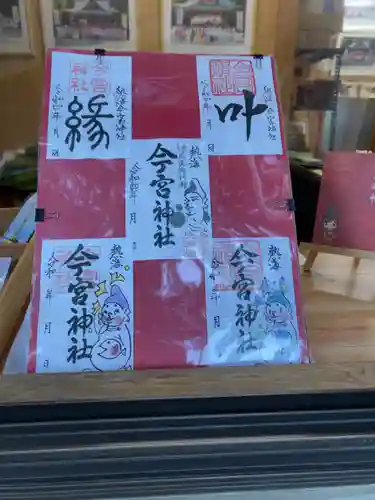 今宮
神社
縁
熱海今宮神社
令和 年 月 日
叶
熱海今宮神社
令和 年 月 日
熱海
今宮神社
令和 年 月 日
熱海
今宮神社
令和 年 月 日
熱海
今宮神社
令和 年 月 日